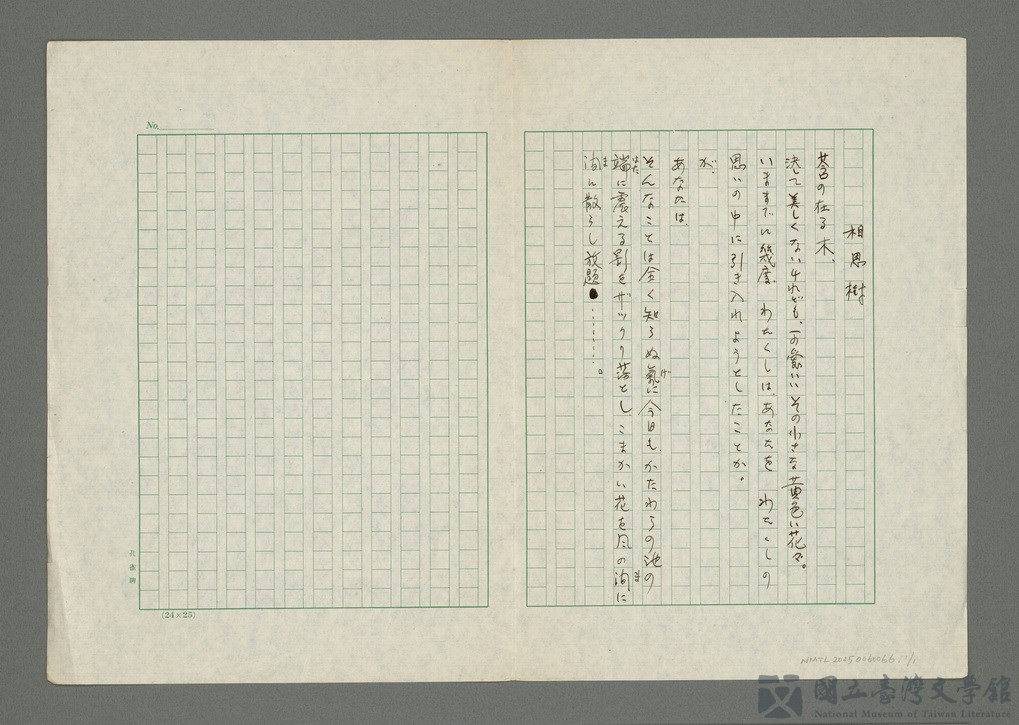 相思樹
蕾の在る木、
決して美しくないけれども、その小さな黄色い花々。
いままでに幾度、わたくしは、あなたを わたくしの
思いの中に引き入れようとしたことか。
が、
あなたは、
そんなことは全く知らぬ氣に今日も、かたわらの池の
端に震える影をザックリ落としこまかい花を風の間に
間に散らし放題●………。
はた
げ
ま
ま
No.
孔雀牌
(24×25)
NMTL20050060066.1/1
國立臺灣文學館
National Museum of Taiwan Literature